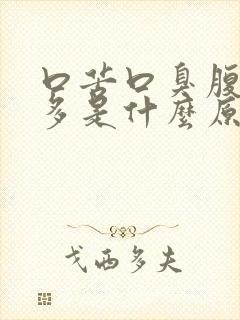 口苦口臭腹
多是什麼原
戈西多夫